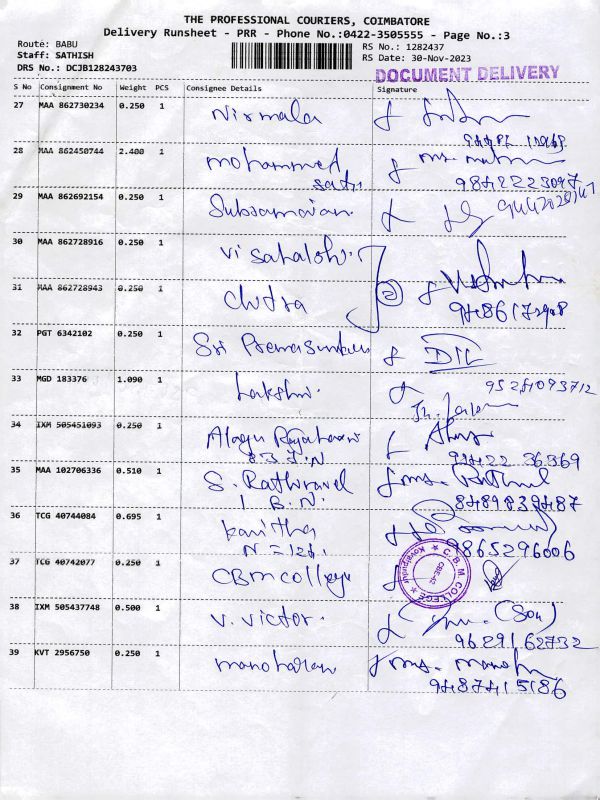 THE PROFESSIONAL COURIERS, COIMBATORE
Delivery Runsheet - PRR - Phone No.:0422-3505555 - Page No.:3
Route: BABU
Staff: SATHISH
DRS No.: DCJB128243703
RS No.: 1282437
RS Date: 30-Nov-2023
DOCUMENT DELIVERY
S No Consignment No Weight PCS Consignee Details Signature
27 MAA 862730234 0.250 1 Nirmala
28 MAA 862450744 2.400 1 mohammed
9842223097
29 MAA 862692154 0.250 1
30 MAA 862728916 0.250 1
31 MAA 862728943 0.250 1 chitra
32 PGT 6342102 0.250 1 Sri
33 MGD 183376 1.090 1 Lakshmi.
34 IXM 505451093 0.250 1 Alagu
94422 36369
35 MAA 102706336 0.510 1 S. Rathivavel
8489839487
36 TCG 40744084 0.695 1 kavitha
9865296006
37 TCG 40742077 0.250 1 CBM college
C.B.M. COLLEGE
Kovaipudur
CBE-42
38 IXM 505437748 0.500 1 V. victor. (Son)
9629162732
39 KVT 2956750 0.250 1 manoharan
9487415186